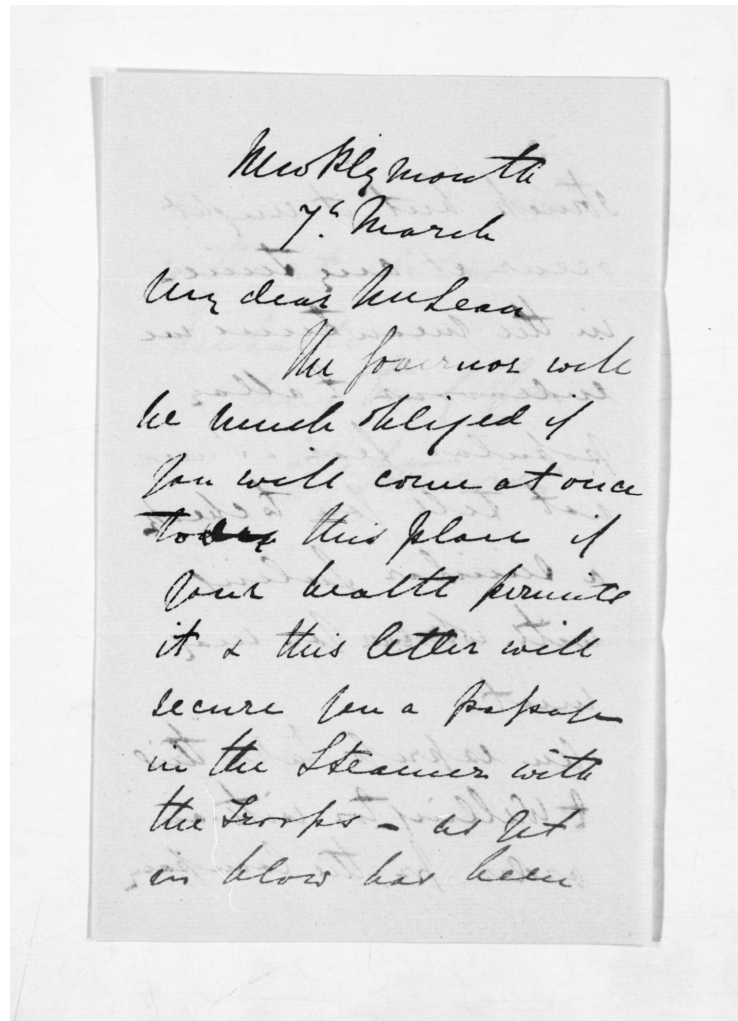 New Plymouth
7th March
My dear McLean
The Governor will
be much obliged if
you will come at once
to this place if
your health permits
it & this letter will
secure you a passage
in the Steamer with
the Troops - as yet
no blow has been